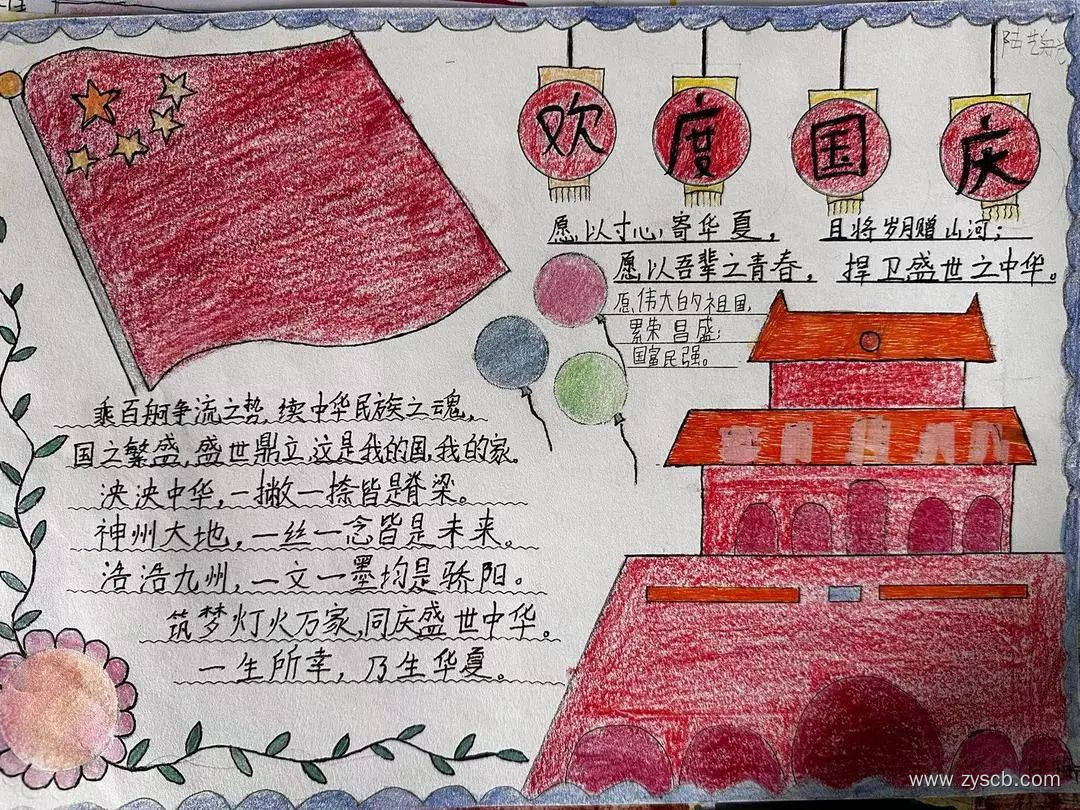 欢度国庆
愿以寸心寄华夏, 且将岁月赠山河;
愿以吾辈之青春, 捍卫盛世之中华。
愿伟大的祖国,
累荣昌盛;
国富民强。
乘百舸争流之势,续中华民族之魂,
国之繁盛,盛世鼎立,这是我的国,我的家。
泱泱中华,一撇一捺皆是脊梁。
神州大地,一丝一念皆是未来。
浩浩九州,一文一墨均是骄阳。
筑梦灯火万家,同庆盛世中华。
一生所幸,乃生华夏。
www.zyscb.com